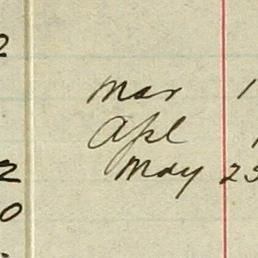 2
Mar 1
Apl 1
2 May 23
0